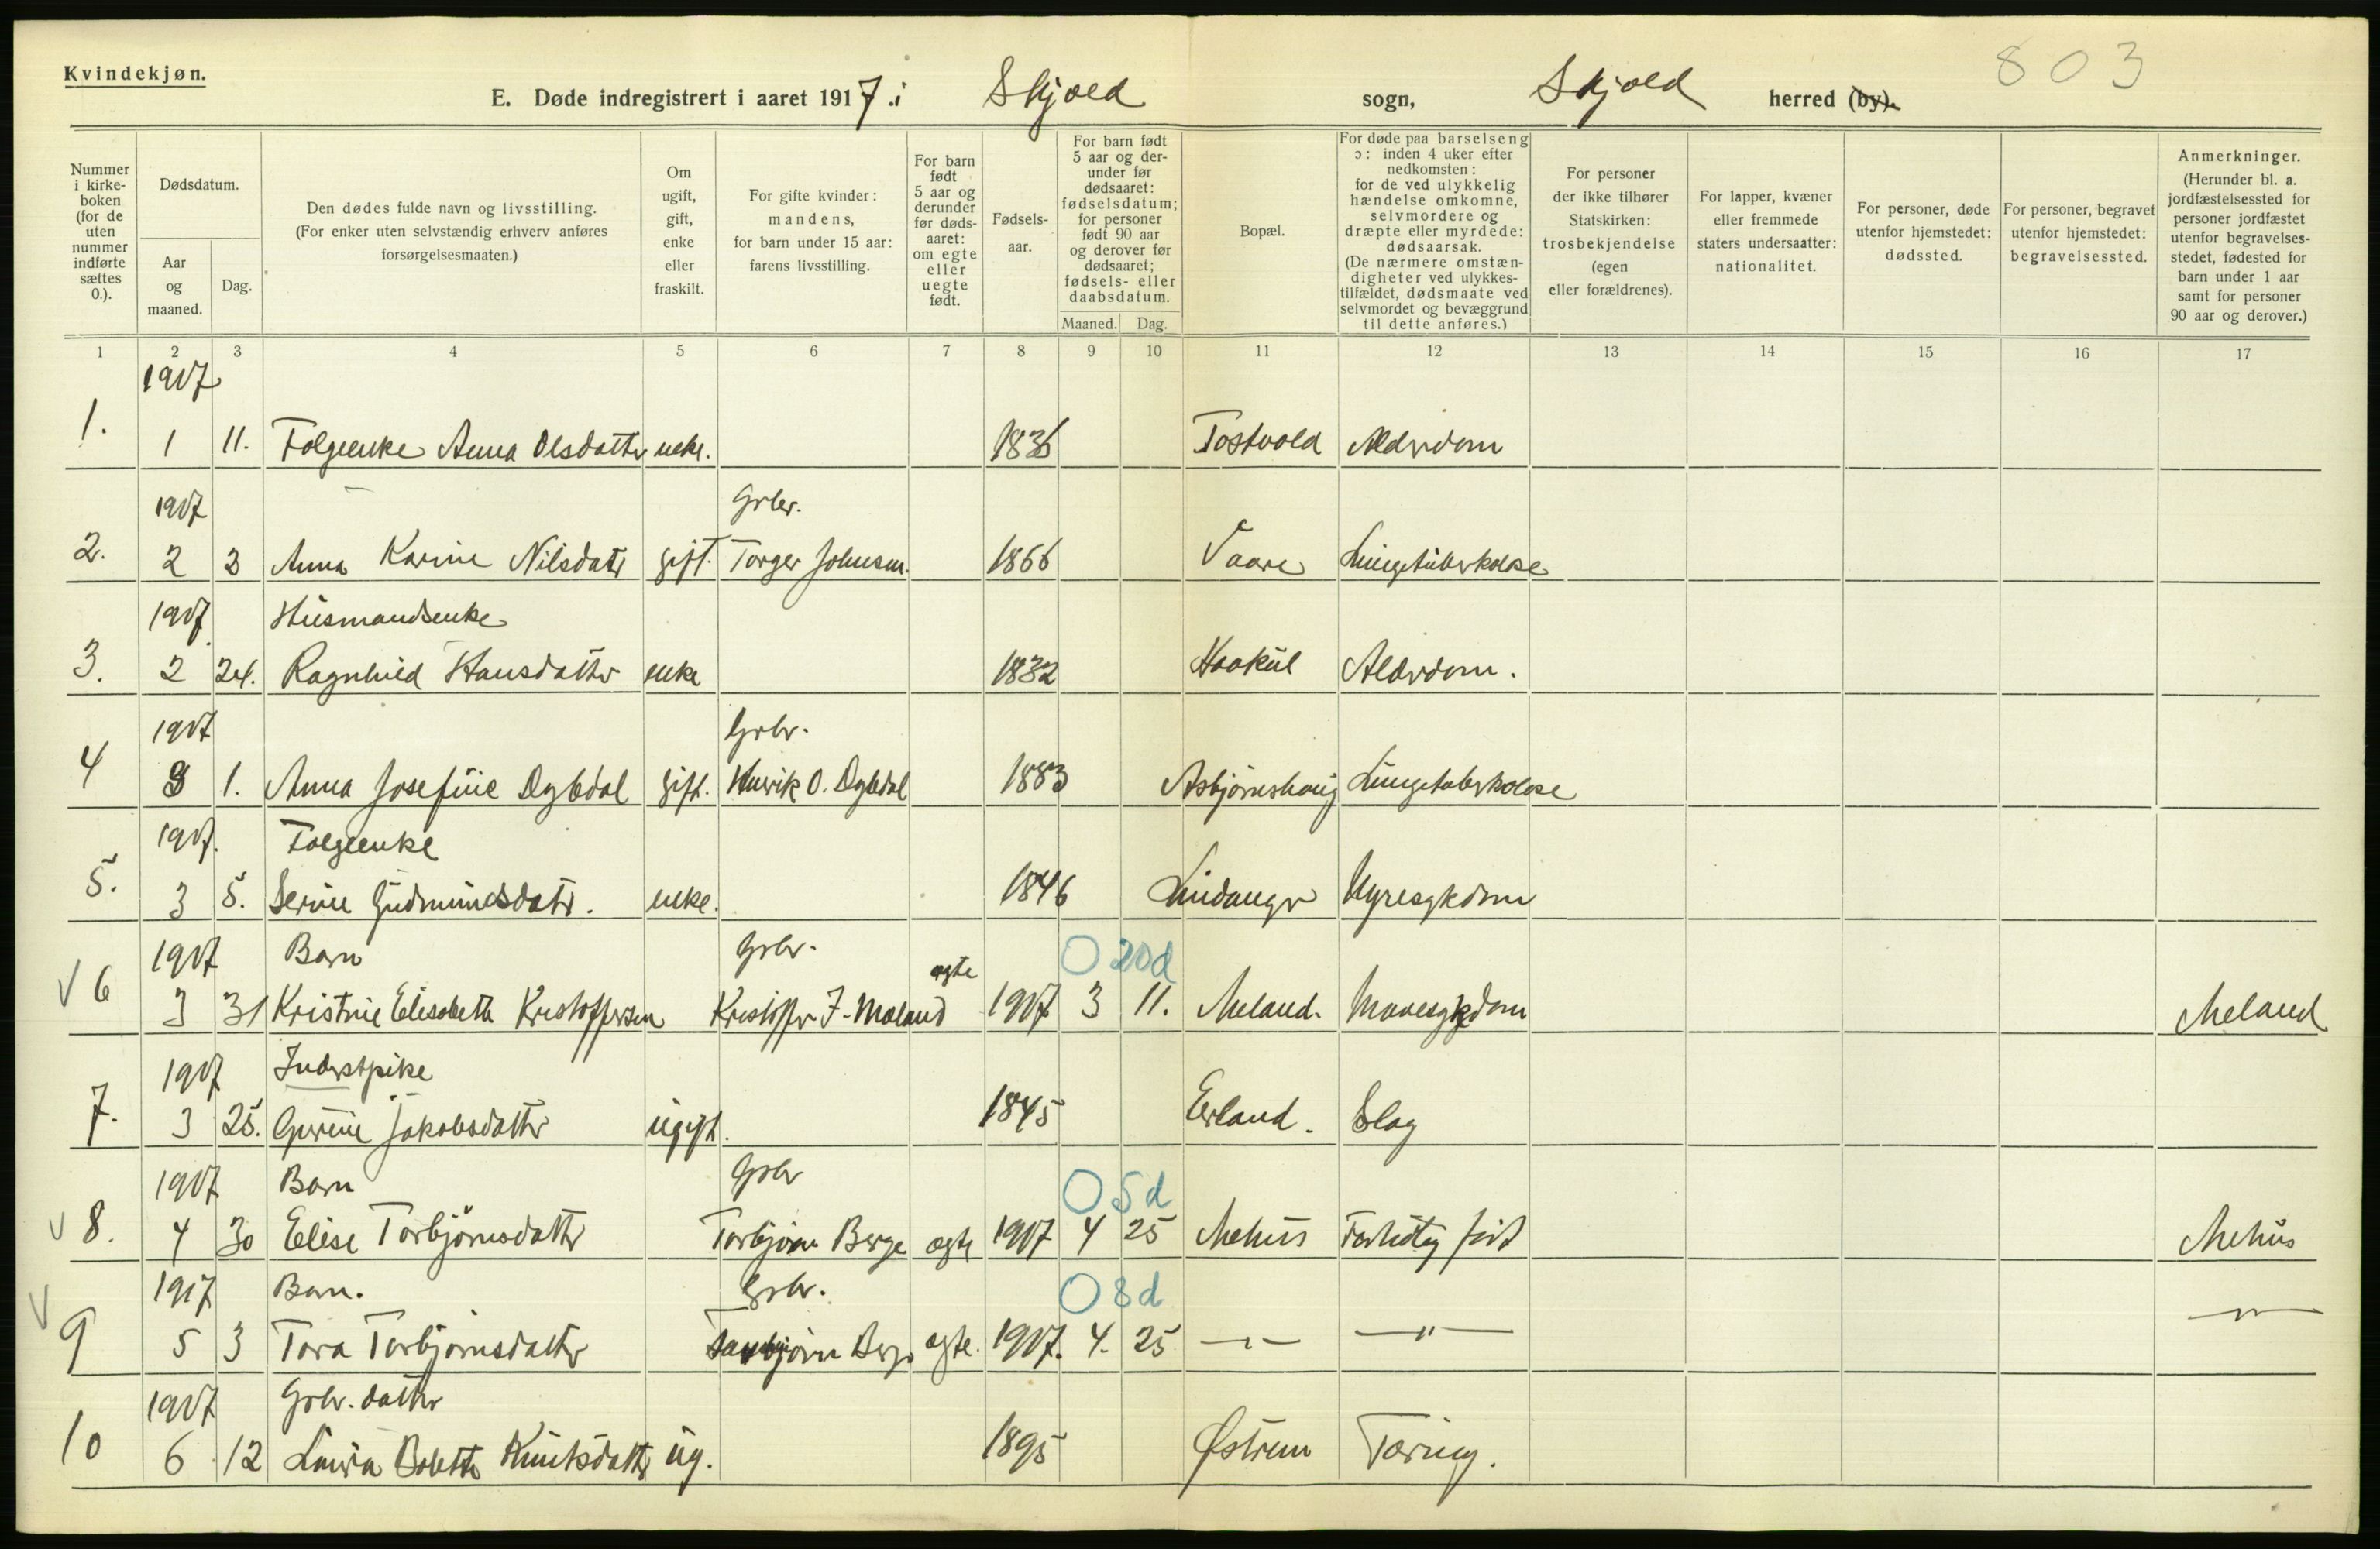 Kvindekjøn.
803
E. Døde indregistrert i aaret 1917 i Skjold sogn, Skjold herred (by).
Nummer i kirkeboken (for de uten nummer indførte sættes 0.).
Dødsdatum.
Aar og maaned.
Dag.
Den dødes fulde navn og livsstilling.
(For enker uten selvstændig erhverv anføres forsørgelsesmaaten.)
Om ugift, gift, enke eller fraskilt.
For gifte kvinder: mandens, for barn under 15 aar: farens livsstilling.
For barn født 5 aar og derunder før dødsaaret: om egte eller uegte født.
Fødselsaar.
For barn født 5 aar og derunder før dødsaaret: fødselsdatum; for personer født 90 aar og derover før dødsaaret; fødsels- eller daabsdatum.
Maaned.
Dag.
Bopæl.
For døde paa barselseng ɔ: inden 4 uker efter nedkomsten: for de ved ulykkelig hændelse omkomne, selvmordere og dræpte eller myrdede: dødsaarsak.
(De nærmere omstændigheter ved ulykkestilfældet, dødsmaate ved selvmordet og bevæggrund til dette anføres.)
For personer der ikke tilhører Statskirken: trosbekjendelse (egen eller forældrenes).
For lapper, kvæner eller fremmede staters undersaatter: nationalitet.
For personer, døde utenfor hjemstedet: dødssted.
For personer, begravet utenfor hjemstedet: begravelsessted.
Anmerkninger.
(Herunder bl. a. jordfæstelsessted for personer jordfæstet utenfor begravelsesstedet, fødested for barn under 1 aar samt for personer 90 aar og derover.)
1 2 3 4 5 6 7 8 9 10 11 12 13 14 15 16 17
1917
1. 1 11. Folgeenke Anna Olsdatter enke. 1836 Tostvold Alderdom
1917 Grbr.
2. 2 2 Anna Karine Nilsdatr gift. Torger Johnsen. 1866 Vaare Lungetuberkolose
1917 Husmandsenke
3. 2 24. Ragnhild Hansdatter enke 1832 Haakul Alderdom.
1917 Grbr.
4 3 1. Anna Josefine Dybdal gift. Henrik O. Dybdal 1883 Asbjørnshaug Lungetuberkolose
1917. Folgeenke
5. 3 5. Serine Gudmundsdatr. enke. 1846 Lindanger Nyresykdom
1917 Barn Grbr. O 20d
V 6 3 31 Kristine Elisabeth Kristoffersen Kristoffer J. Mæland egte 1917 3 11. Mæland. Mavesykdom Mæland
1917 Inderstpike
7. 3 25. Gurine Jakobsdatter ugift. 1845 Erland. Slag
1917 Barn Grbr O 5d
V 8. 4 30 Elise Torbjørnsdatter Torbjørn Berge egte 1917 4 25 Mehus Forhutlig født Mehus
1917 Barn. Grbr. O 8d
V 9 5 3 Tora Torbjørnsdatter Torbjørn Berge egte. 1917. 4. 25 —"— —"— —"—
1917 Grbr. datter
10 6 12 Laura Bolette Knutsdatter ug. 1895 Østrem Tæring.